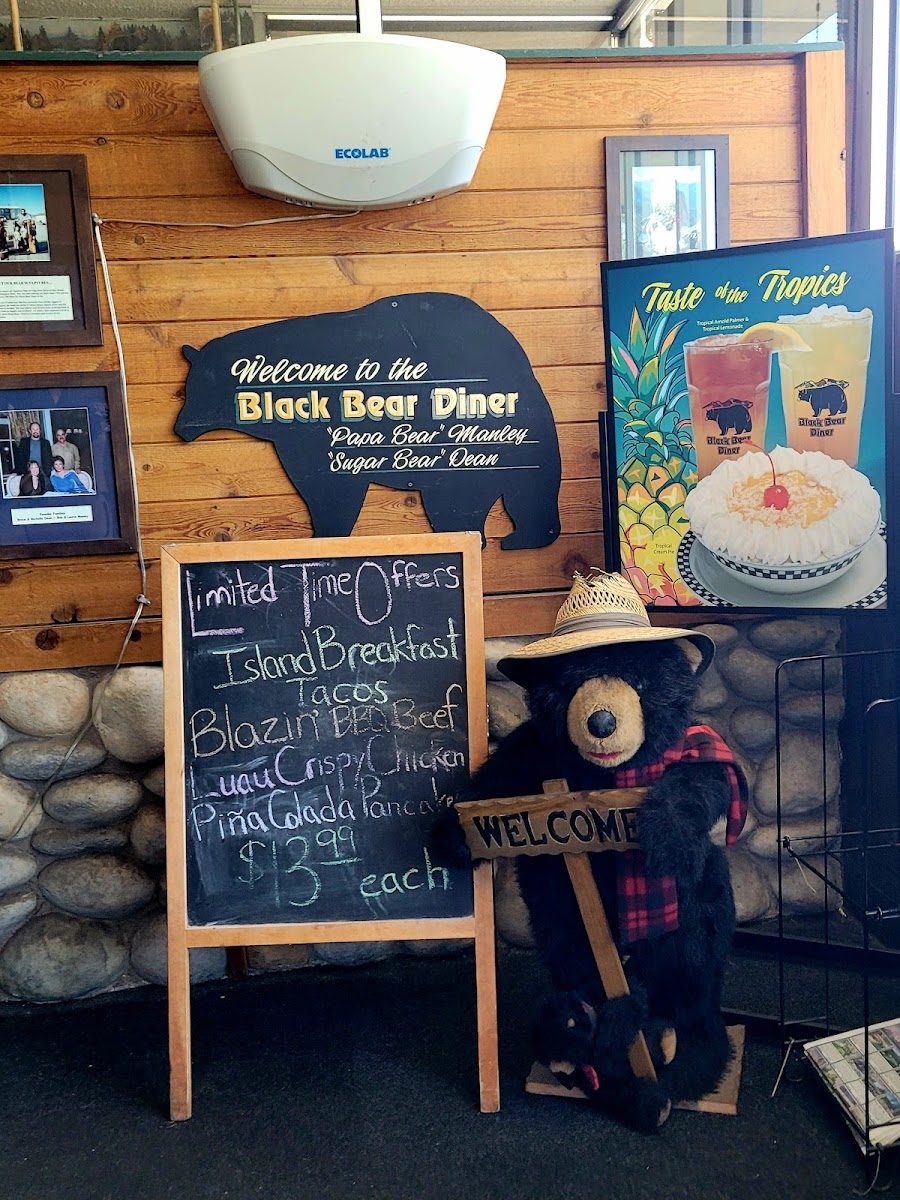 ECOLAB
Welcome to the
Black Bear Diner
"Papa Bear" Manley
"Sugar Bear" Dean
Taste of the Tropics
Tropical Arnold Palmer &
Tropical Lemonade
Black Bear
Diner
Black Bear
Diner
Tropical
Cream Pie
Limited Time Offers
Island Breakfast
Tacos
Blazin' BBQ Beef
Luau Crispy Chicken
Piña Colada Pancake
$13.99
each
WELCOME
Founder Families